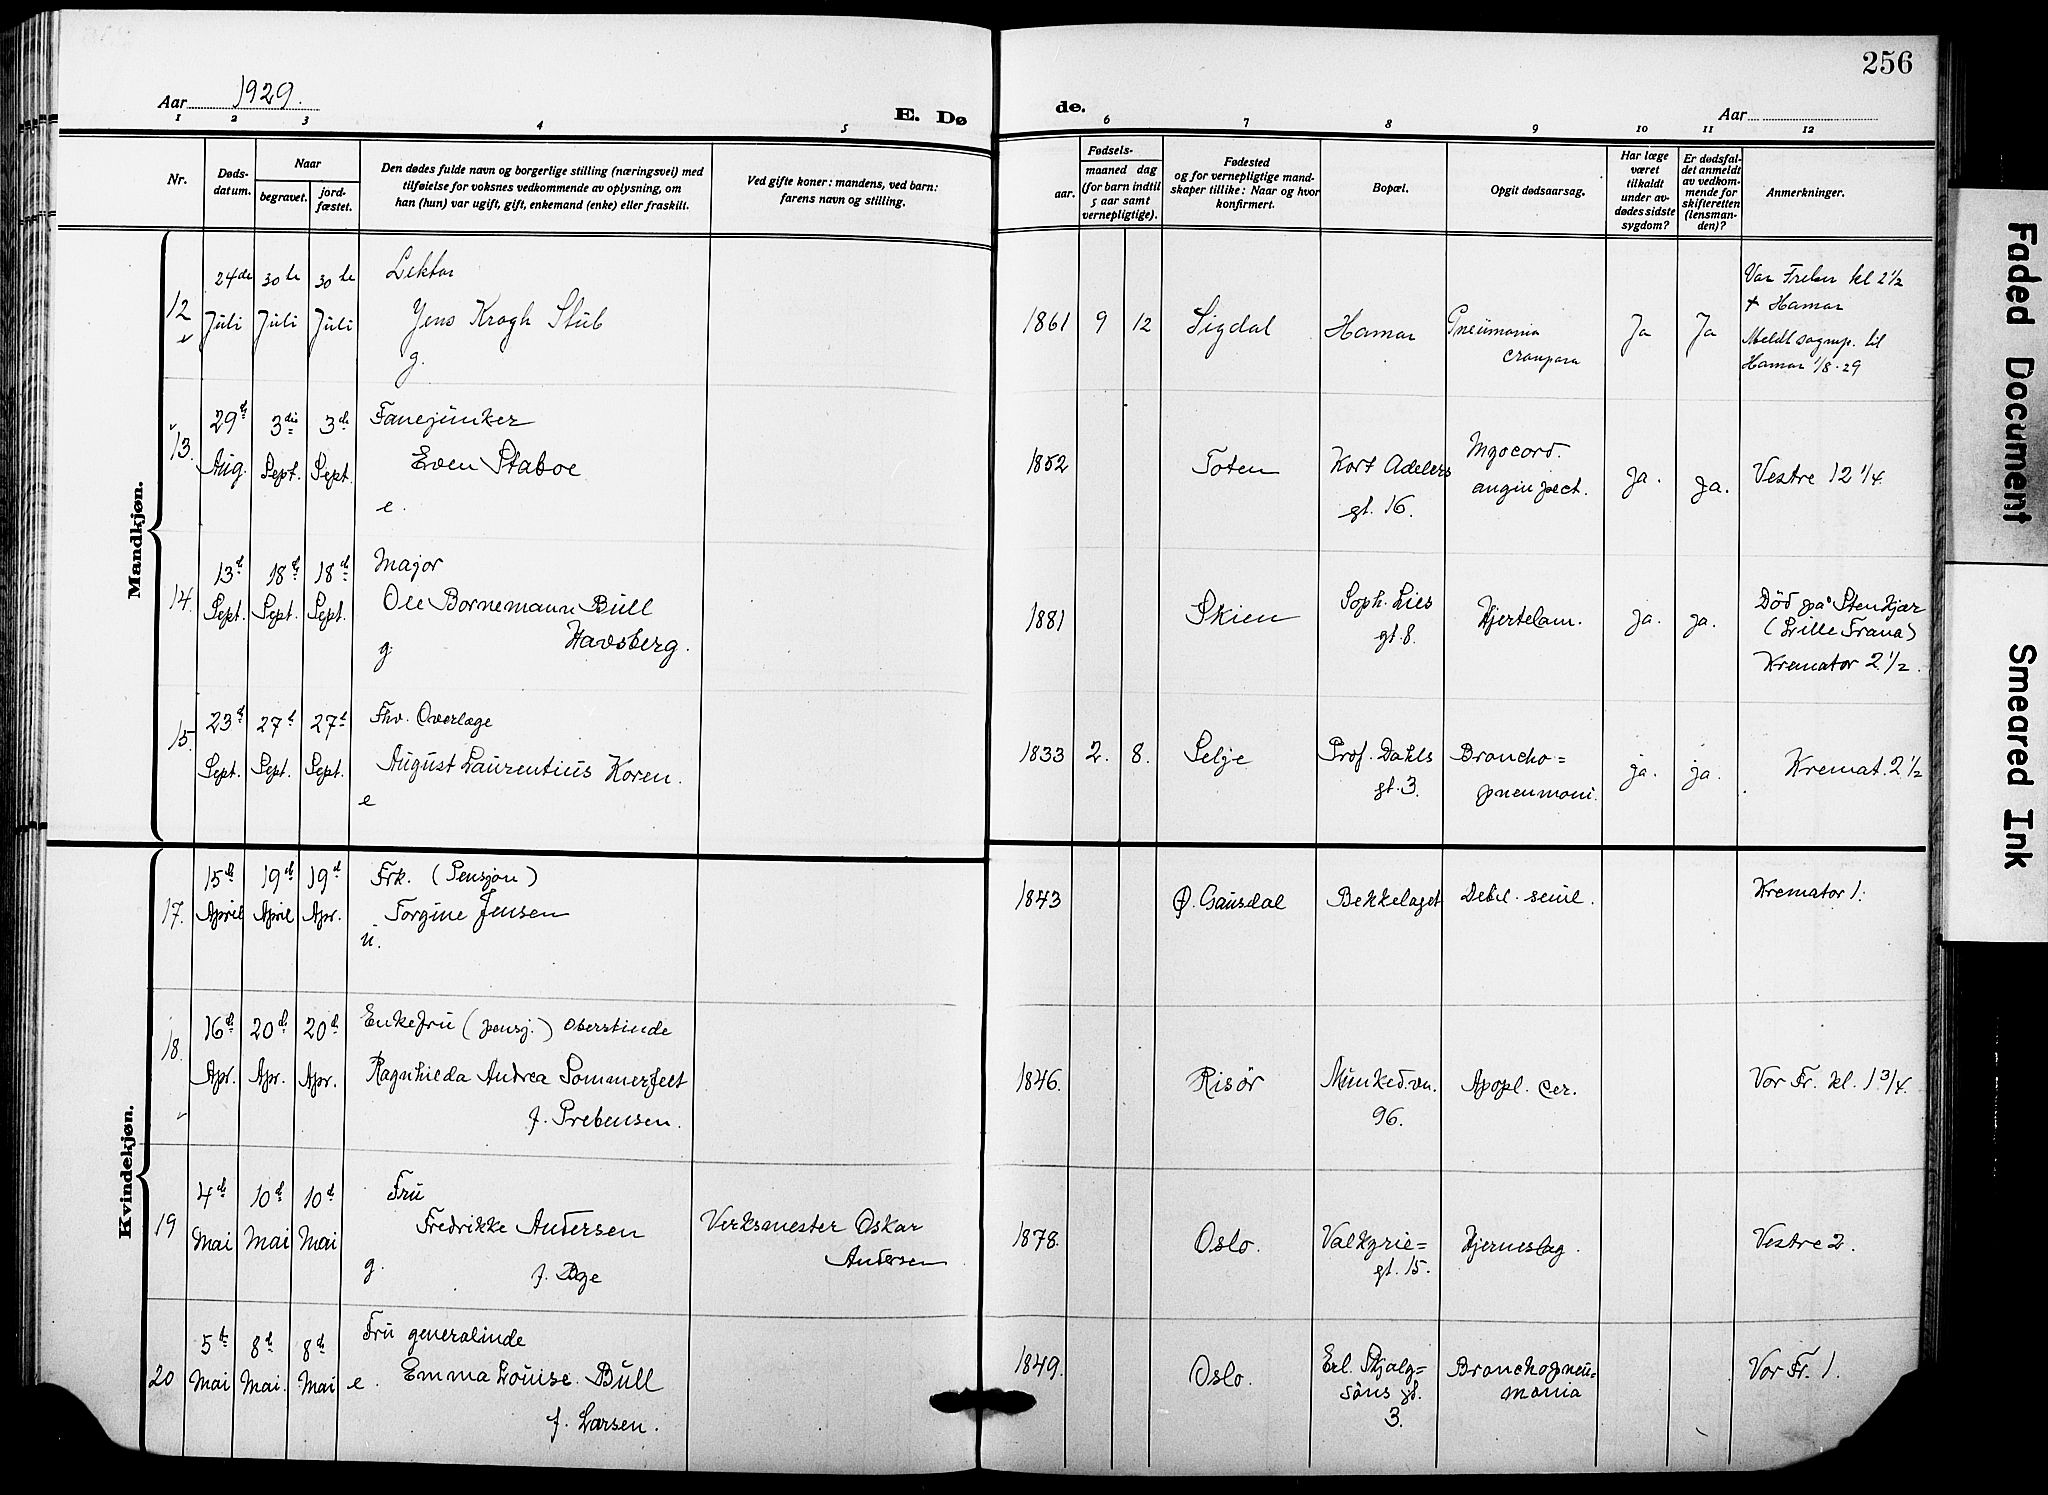 256
Aar 1929.
E. Dø
de.
Aar
1 2 3 4 5 6 7 8 9 10 11 12
Nr.
Døds-
datum.
Naar
begravet.
jord-
fæstet.
Den dødes fulde navn og borgerlige stilling (næringsvei) med
tilføielse for voksnes vedkommende av oplysning, om
han (hun) var ugift, gift, enkemand (enke) eller fraskilt.
Ved gifte koner: mandens, ved barn:
farens navn og stilling.
Fødsels-
aar.
maaned dag
(for barn indtil
5 aar samt
vernepligtige).
Fødested
og for vernepligtige mand-
skaper tillike: Naar og hvor
konfirmert.
Bopæl.
Opgit dødsaarsag.
Har læge
været
tilkaldt
under av-
dødes sidste
sygdom?
Er dødsfal-
det anmeldt
av vedkom-
mende for
skifteretten
(lensman-
den)?
Anmerkninger.
Mandkjøn.
12
24de
Juli
30te
Juli
30te
Juli
Lektor
Jens Krogh Stub
g.
1861 9 12
Sigdal
Hamar
Pneumonia
croupøsa
Ja
Ja
Vor Frelser kl 2 1/2
† Hamar
Meldt sognep. til
Hamar 1/8-29
13.
29de
Aug.
3die
Sept.
3die
Sept.
Fanejunker
Even Staboe
e.
1852
Toten
Kort Adelers
gt. 16.
Myocord.
angin pect.
Ja.
Ja.
Vestre 12 1/4.
14.
13de
Sept.
18de
Sept.
18de
Sept.
Major
Ole Bornemann Bull
Havsberg.
g.
1881
Skien
Soph. Lies
gt. 8.
Hjertelam.
ja.
ja.
Død på Stenkjær
(Lille Frana)
Kremator 2 1/2.
15.
23d
Sept.
27d
Sept.
27d
Sept.
Fhv. Overlæge
August Laurentius Koren.
e
1833 2. 8.
Selje
Prof. Dahls
gt. 3.
Broncho=
pneumoni.
ja.
ja.
Kremat. 2 1/2
Kvindekjøn.
17.
15de
April
19de
April
19d
Apr.
Frk. (Pensjon)
Torgine Jensen
u.
1843
Ø. Gausdal
Bekkelaget
Debil. senil.
Kremator 1.
18.
16d
Apr.
20d
Apr.
20d
Apr.
Enkefru (pensj.) Oberstinde
Ragnhilda Andrea Sommerfelt
f. Prebensen.
1846.
Risør
Munked.vn.
96.
Apopl. cer.
Vor Fr. kl. 1 3/4.
19
4de
Mai
10d
Mai
10d
Mai
Fru
Fredrikke Andersen
g. f. Dge
Verksmester Oskar
Andersen
1878.
Oslo.
Valkyrie=
gt. 15.
Hjerneslag.
Vestre 2.
20
5te
Mai
8d
Mai.
8de
Mai
Fru generalinde
e. Emma Louise. Bull
f. Larsen.
1849.
Oslo.
Erl. Skjalg=
søns gt.
3.
Bronchopneu=
monia
Vor Fr. 1.
Faded Document
Smeared Ink